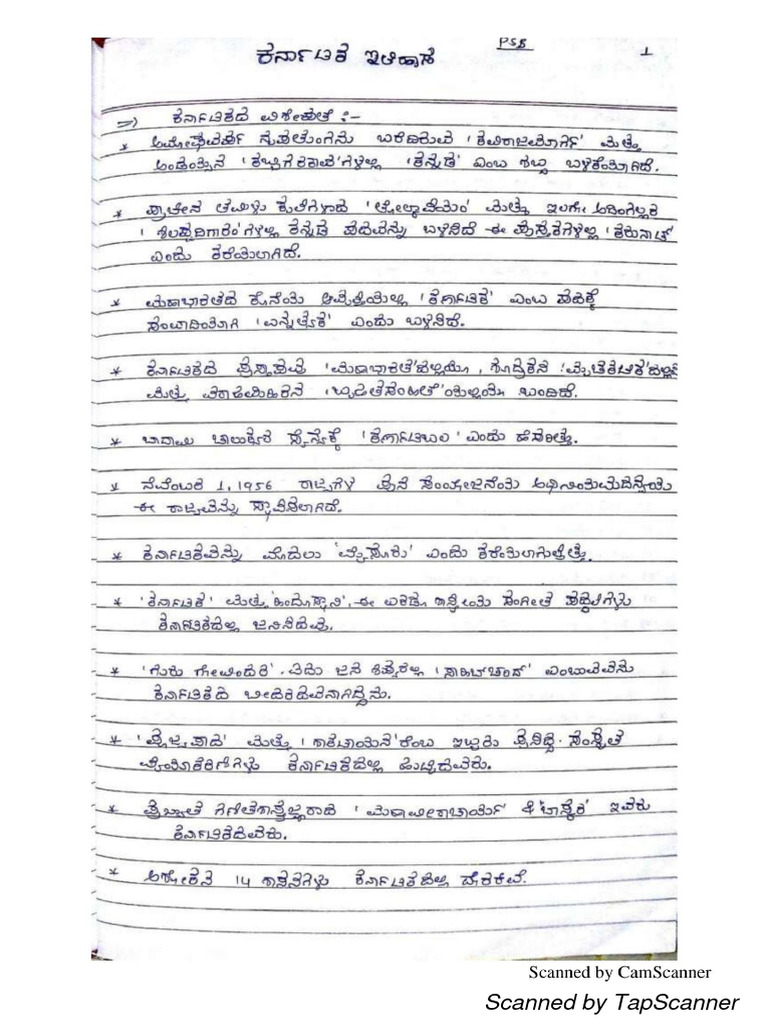 PSB
1
ಕರ್ನಾಟಕ ಇತಿಹಾಸ
=) ಕರ್ನಾಟಕದ ವಿಶೇಷತೆ :-
* ಅಮೋಘವರ್ಷ ನೃಪತುಂಗನು ಬರೆದಿರುವ 'ಕವಿರಾಜಮಾರ್ಗ' ಮತ್ತು
'ಕಬ್ಬಿಗರಕಾವ'ಗಳಲ್ಲಿ 'ಕನ್ನಡ' ಎಂಬ ಶಬ್ದ ಬಳಕೆಯಾಗಿದೆ.
* ಪ್ರಾಚೀನ ತಮಿಳು ಕೃತಿಗಳಾದ ಮತ್ತು ಇಲಂಗೋ
'ಶಿಲಪ್ಪದಿಗಾರಂ'ಗಳಲ್ಲಿ ಕನ್ನಡ ಪದವನ್ನು ಬಳಸಿದೆ ಈ ಪುಸ್ತಕಗಳಲ್ಲಿ 'ಕರುನಾಟ್'
ಎಂದು ಕರೆಯಲಾಗಿದೆ.
* ಮಹಾಭಾರತದ ಕೊನೆಯ ಆವೃತ್ತಿಯಲ್ಲಿ 'ಕರ್ಣಾಟಕ' ಎಂಬ ಪದಕ್ಕೆ
ಎಂದು ಬಳಸಿದೆ.
* ಕರ್ನಾಟಕದ ಪ್ರಸ್ತಾಪವು 'ಮಹಾಭಾರತ'ದಲ್ಲಿಯೂ, ಶೂದ್ರಕನ 'ಮೃಚ್ಛಕಟಿಕ'ದಲ್ಲಿ
ಮತ್ತು ವರಾಹಮಿಹಿರನ 'ಬೃಹತಸಂಹಿತೆ'ಯಲ್ಲಿಯೂ ಬಂದಿದೆ.
* ಬಾದಾಮಿ ಚಾಲುಕ್ಯರ ಸೈನ್ಯಕ್ಕೆ 'ಕರ್ಣಾಟಬಲ' ಎಂದು ಹೆಸರಿತ್ತು.
* ನವೆಂಬರ 1, 1956 ರಾಜ್ಯಗಳ ಪುನರ್
ಈ ರಾಜ್ಯವನ್ನು ಸ್ಥಾಪಿಸಲಾಗಿದೆ.
* ಕರ್ನಾಟಕವನ್ನು ಮೊದಲು 'ಮೈಸೂರು' ಎಂದು ಕರೆಯಲಾಗುತ್ತಿತ್ತು.
* 'ಕರ್ನಾಟಕ' ಮತ್ತು 'ಹಿಂದೂಸ್ತಾನಿ', ಈ ಎರಡೂ ಶಾಸ್ತ್ರೀಯ ಸಂಗೀತ ಪದ್ಧತಿಗಳು
ಕರ್ನಾಟಕದಲ್ಲಿ ಜನಿಸಿದವು.
* 'ಗುರು ಗೋವಿಂದರ', ಐದು ಜನ ಶಿಷ್ಯರಲ್ಲಿ 'ಸಾಹಿಬ್‌ಚಾಂದ್' ಎಂಬುವವನು
ಕರ್ನಾಟಕದ ಬೀದರದವನಾಗಿದ್ದನು.
* 'ಪೂಜ್ಯಪಾದ' ಮತ್ತು 'ಶಾಕಟಾಯನ'ರೆಂಬ ಇಬ್ಬರು ಪ್ರಸಿದ್ಧ ಸಂಸ್ಕೃತ
ವೈಯಾಕರಣಿಗಳು ಕರ್ನಾಟಕದಲ್ಲಿ ಹುಟ್ಟಿದವರು.
* ಪ್ರಖ್ಯಾತ ಗಣಿತಶಾಸ್ತ್ರಜ್ಞರಾದ 'ಮಹಾವೀರಾಚಾರ್ಯ' & 'ಭಾಸ್ಕರ' ಇವರು
ಕರ್ನಾಟಕದವರು.
* ಅಶೋಕನ 14 ಶಾಸನಗಳು ಕರ್ನಾಟಕದಲ್ಲಿ ದೊರಕಿವೆ.
Scanned by CamScanner
Scanned by TapScanner